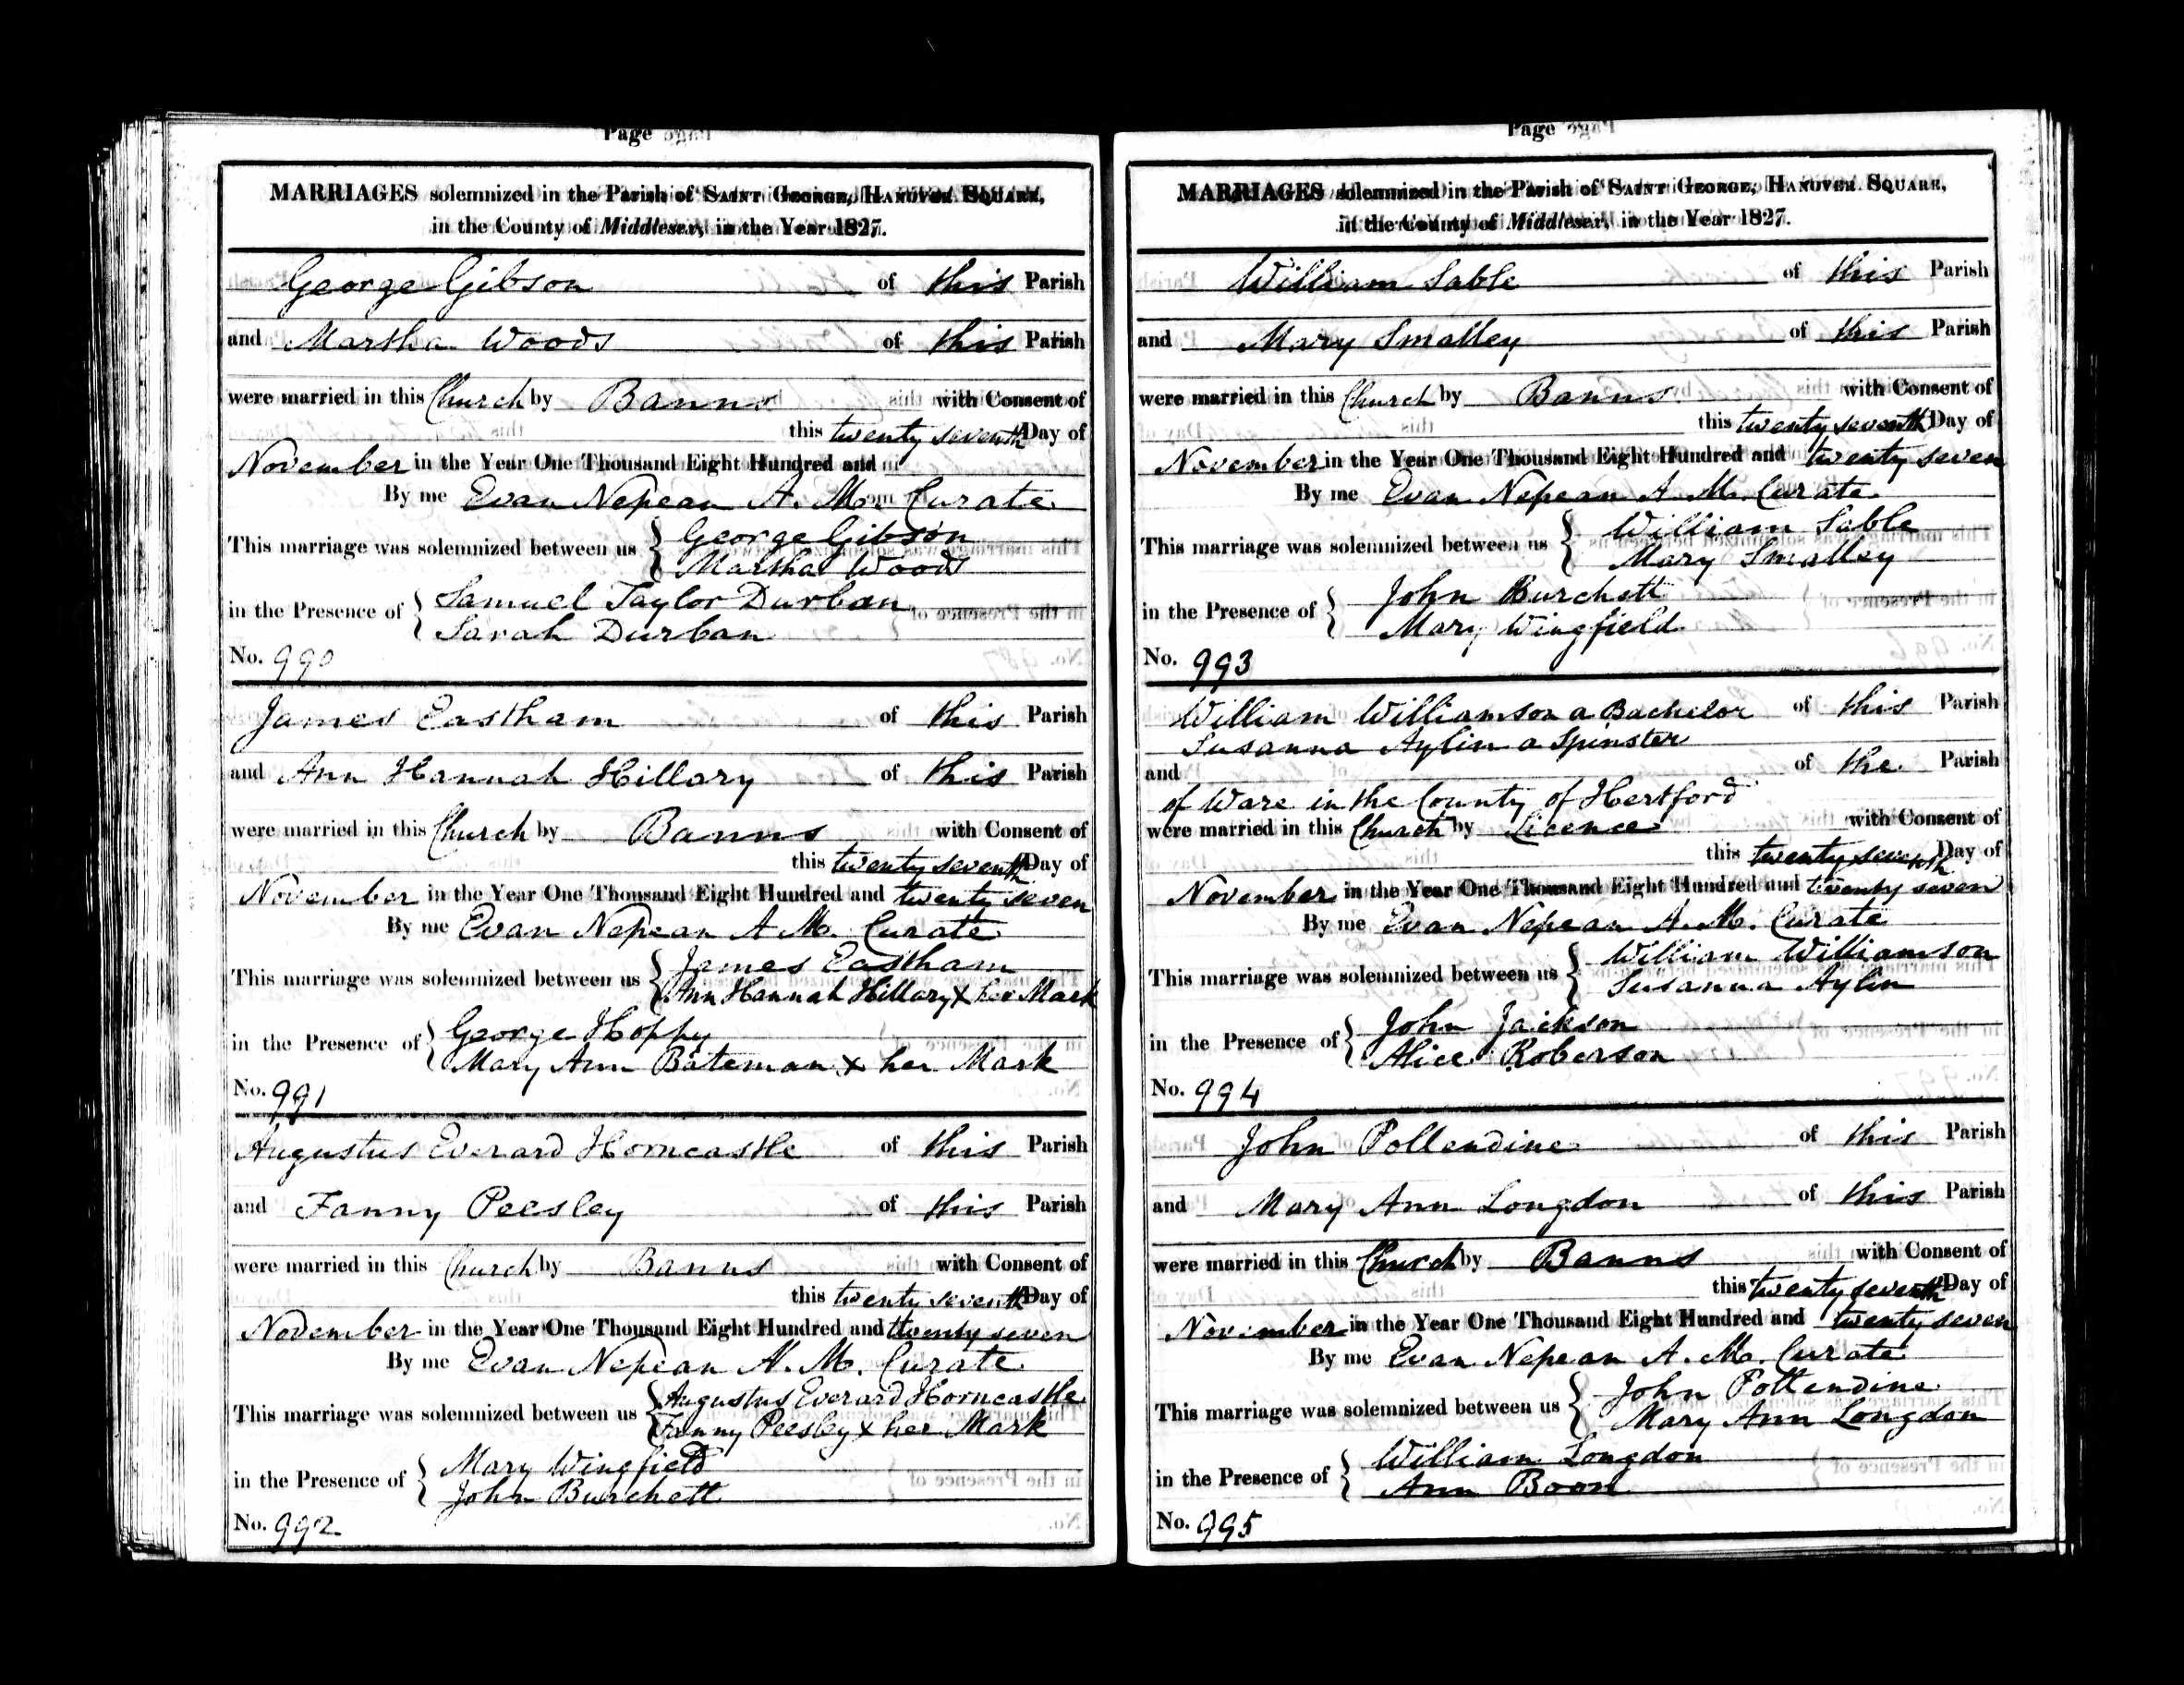 Page
MARRIAGES solemnized in the Parish of SAINT GEORGE, HANOVER SQUARE,
in the County of Middlesex, in the Year 1827.
George Gibson of this Parish
and Martha Woods of this Parish
were married in this Church by Banns with Consent of
this twenty seventh Day of
November in the Year One Thousand Eight Hundred and
By me Evan Nepean A. M. Curate
This marriage was solemnized between us { George Gibson
Martha Woods
in the Presence of { Samuel Taylor Durban
Sarah Durban
No. 990
James Eastham of this Parish
and Ann Hannah Hillary of this Parish
were married in this Church by Banns with Consent of
this twenty seventh Day of
November in the Year One Thousand Eight Hundred and twenty seven
By me Evan Nepean A M. Curate
This marriage was solemnized between us { James Eastham
Ann Hannah Hillary X her Mark
in the Presence of { George Hoppy
Mary Ann Bateman X her Mark
No. 991
Augustus Everard Horncastle of this Parish
and Fanny Peesley of this Parish
were married in this Church by Banns with Consent of
this twenty seventh Day of
November in the Year One Thousand Eight Hundred and twenty seven
By me Evan Nepean A. M. Curate
This marriage was solemnized between us { Augustus Everard Horncastle
Fanny Peesley X her Mark
in the Presence of { Mary Wingfield
John Burchett
No. 992
Page
MARRIAGES solemnized in the Parish of SAINT GEORGE, HANOVER SQUARE,
in the County of Middlesex, in the Year 1827.
William Sable of this Parish
and Mary Smalley of this Parish
were married in this Church by Banns with Consent of
this twenty seventh Day of
November in the Year One Thousand Eight Hundred and twenty seven
By me Evan Nepean A. M. Curate
This marriage was solemnized between us { William Sable
Mary Smalley
in the Presence of { John Burchett
Mary Wingfield
No. 993
William Williamson a Bachelor of this Parish
Susanna Aylin a Spinster
and of the Parish
of Ware in the County of Hertford
were married in this Church by Licence with Consent of
this twenty seventh Day of
November in the Year One Thousand Eight Hundred and twenty seven
By me Evan Nepean A. M. Curate
This marriage was solemnized between us { William Williamson
Susanna Aylin
in the Presence of { John Jackson
Alice Roberson
No. 994
John Pollendine of this Parish
and Mary Ann Longdon of this Parish
were married in this Church by Banns with Consent of
this twenty seventh Day of
November in the Year One Thousand Eight Hundred and twenty seven
By me Evan Nepean A. M. Curate
This marriage was solemnized between us { John Pottendine
Mary Ann Longdon
in the Presence of { William Longdon
Ann Boon
No. 995